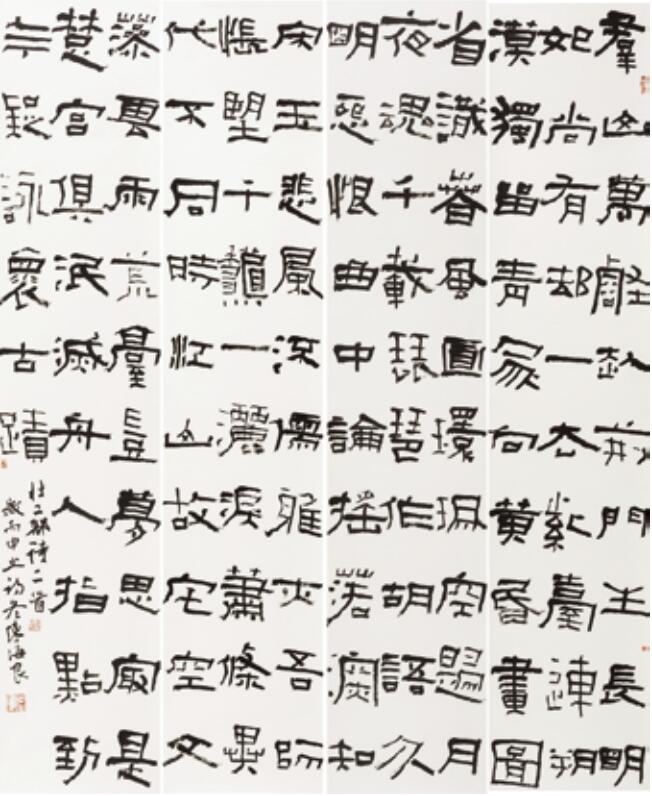 羣山萬壑赴荊門生長明
妃尚有邨一去紫臺連朔
漠獨留青冢向黃昏畫圖
省識春風面環珮空歸月
夜魂千載琵琶作胡語分
明怨恨曲中論搖落深知
宋玉悲風流儒雅亦吾師
悵望千龝一灑淚蕭條異
代不同時江山故宅空文
藻雲雨荒臺豈夢思最是
楚宮俱泯滅舟人指點到
今疑詠懷古蹟
杜工部詩二首
歲丙申之初冬陳海良